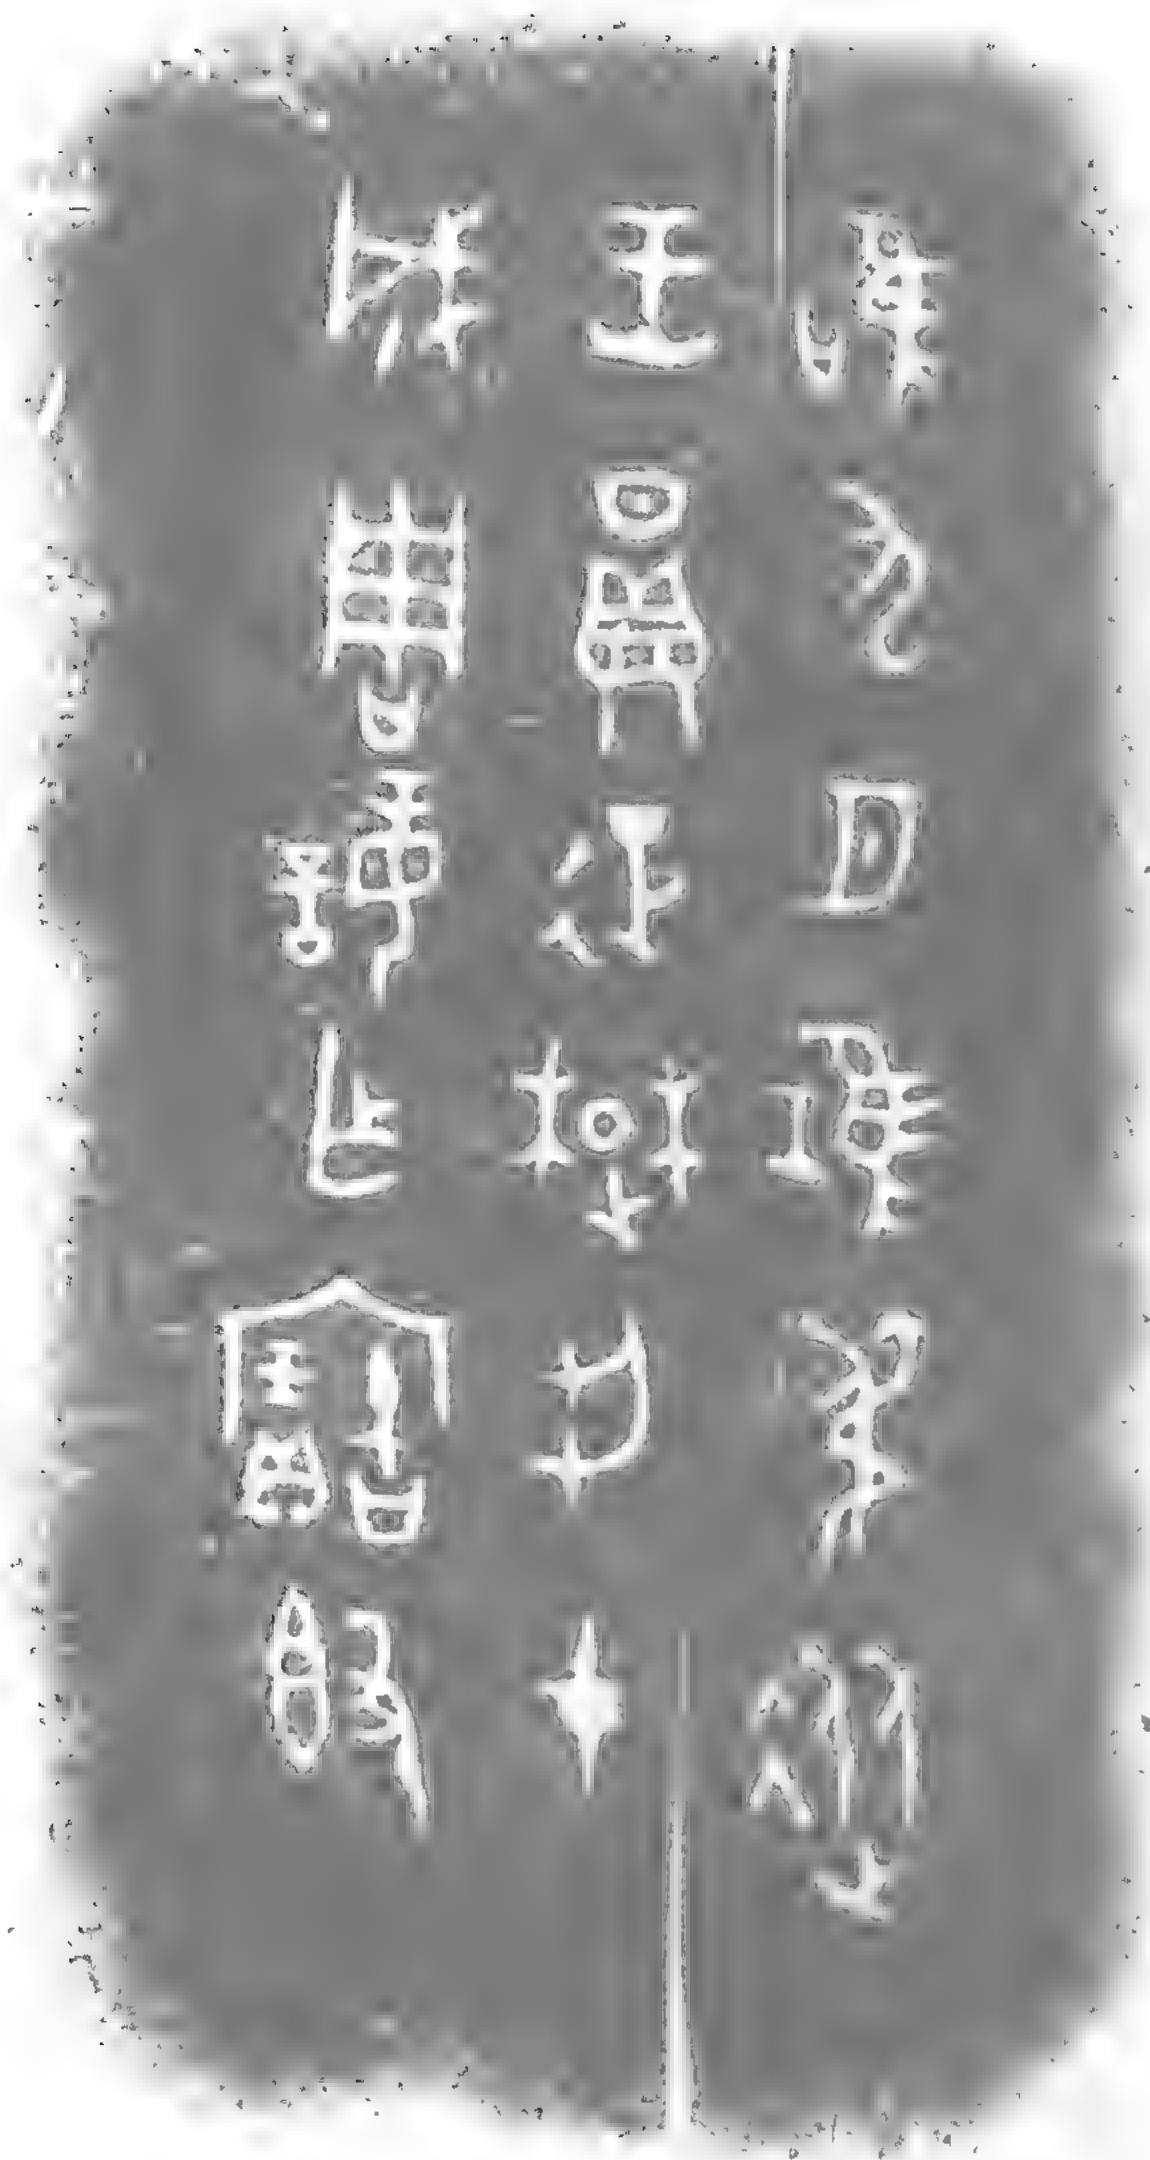 唯九月𨾊叔從
王員征楚荊才
成周誨乍寶簋